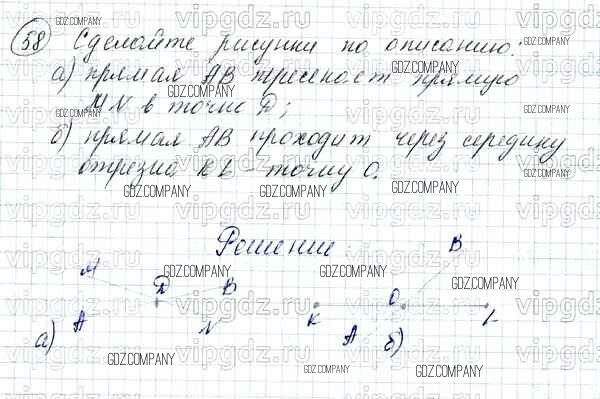 58 Сделайте рисунки по описанию:
а) прямая АВ пересекает прямую
MN в точке D;
б) прямая АВ проходит через середину
отрезка KL – точку О.
Решение
M D B
A N
а)
B
K O L
A б)
vipgdz.ru
GDZ.COMPANY